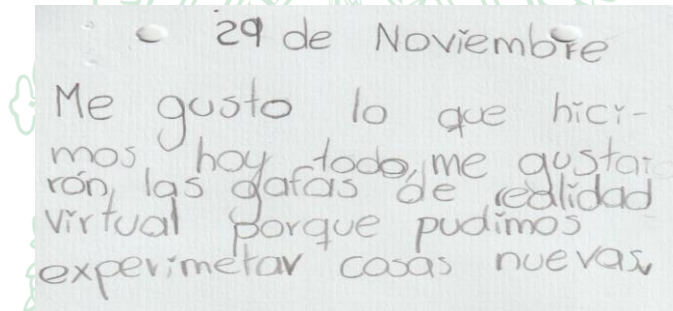 29 de Noviembre
Me gusto lo que hici-
mos hoy todo, me gustar
rón, las gafas de realidad
virtual porque pudimos
experimetar cosas nuevas